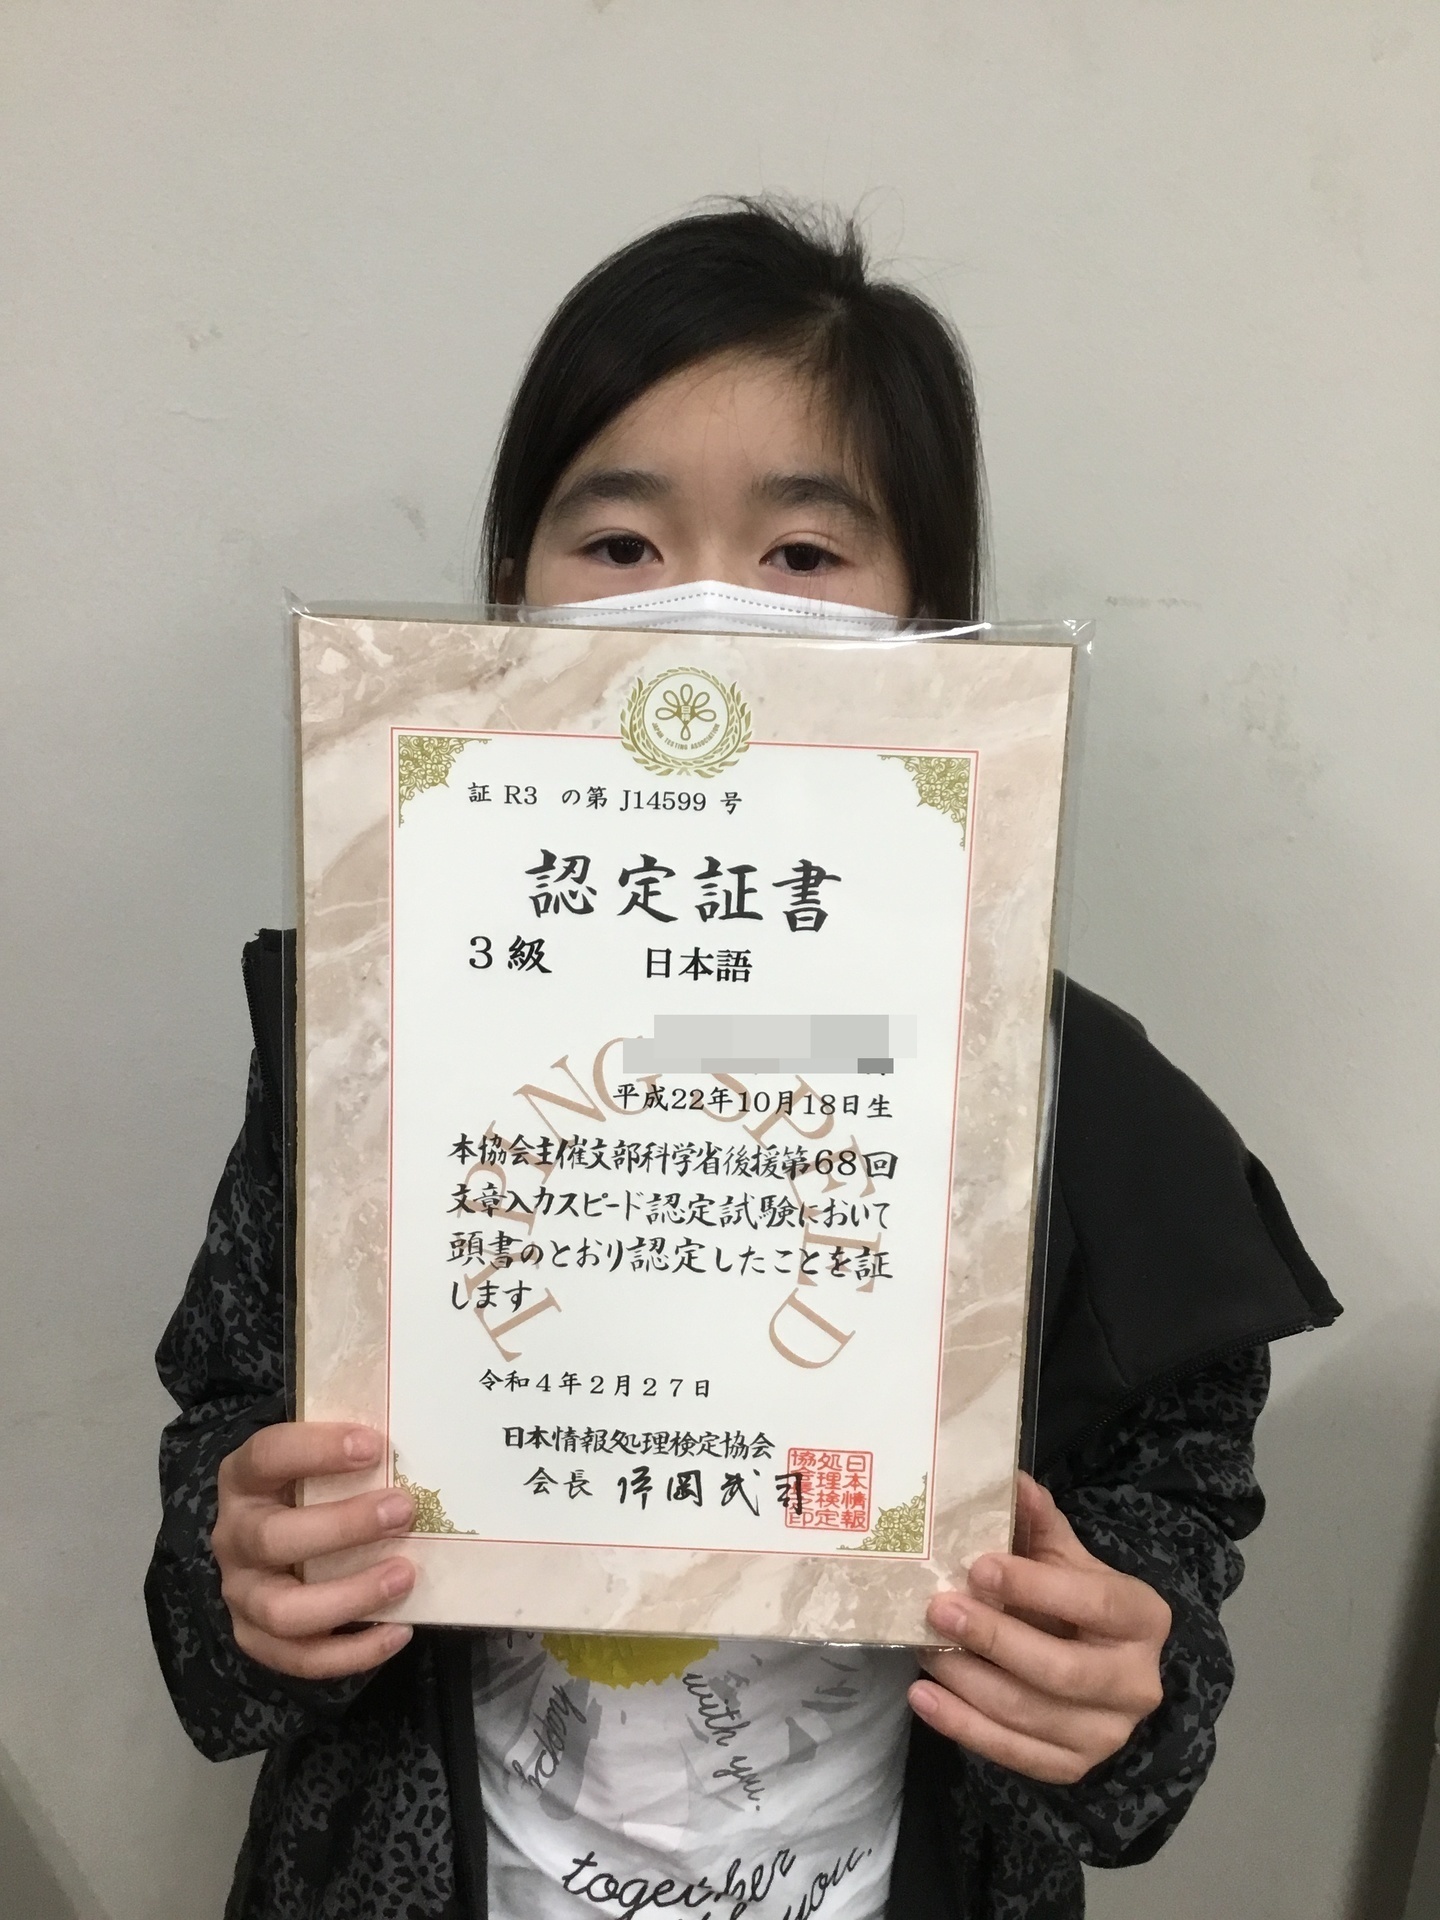 JAPAN TESTING ASSOCIATION
証 R3 の第 J14599 号
認定証書
3級 日本語
平成22年10月18日生
TYPING SPEED
本協会主催文部科学省後援第68回
文章入力スピード認定試験において
頭書のとおり認定したことを証
します
令和4年2月27日
日本情報処理検定協会
会長 岡武司
日本情報
処理検定
協会
印
happy
with you.
together
you.